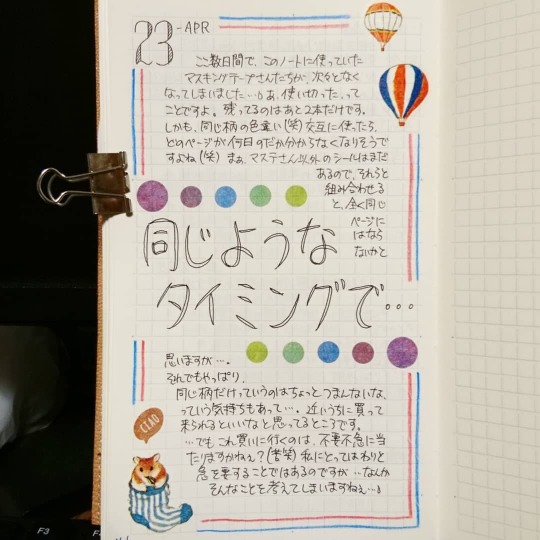 23-APR
ここ数日間で、このノートに使っていた
マスキングテープさんたちが、次々となく
なってしまいました…。あ、使い切った、って
ことですよ。残ってるのはあと2本だけです。
しかも、同じ柄の色違い(笑)交互に使ったら、
どのページが何日のだか分からなくなりそうで
すよね(笑) まぁ、マステさん以外のシールはまだ
あるので、それらと
組み合わせる
と、全く同じ
ページに
はなら
ないかと
同じような
タイミングで…
思いますが…。
それでもやっぱり、
同じ柄だけっていうのはちょっとつまんないな、
っていう気持ちもあって…。近いうちに買って
来られるといいなと思ってるところです。
…でもこれ買いに行くのは、不要不急に当
たりますかねぇ?(苦笑)私にとってはわりと
急を要することではあるのですが…なんか
そんなことを考えてしまいますねぇ…♪
CIAO
F3
F4